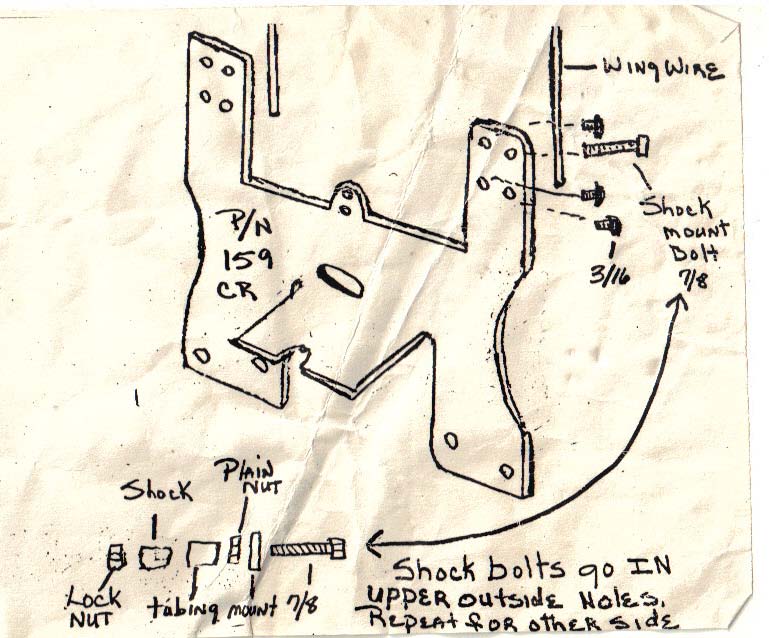 WINGWIRE
Shock
mount
Bolt
7/8
3/16
P/N
159
CR
Plain
NUT
Shock
Lock
NUT
tubing
mount
7/8
Shock bolts go IN
UPPER OUTSIDE HOLES.
REPEAT FOR OTHER SIDE